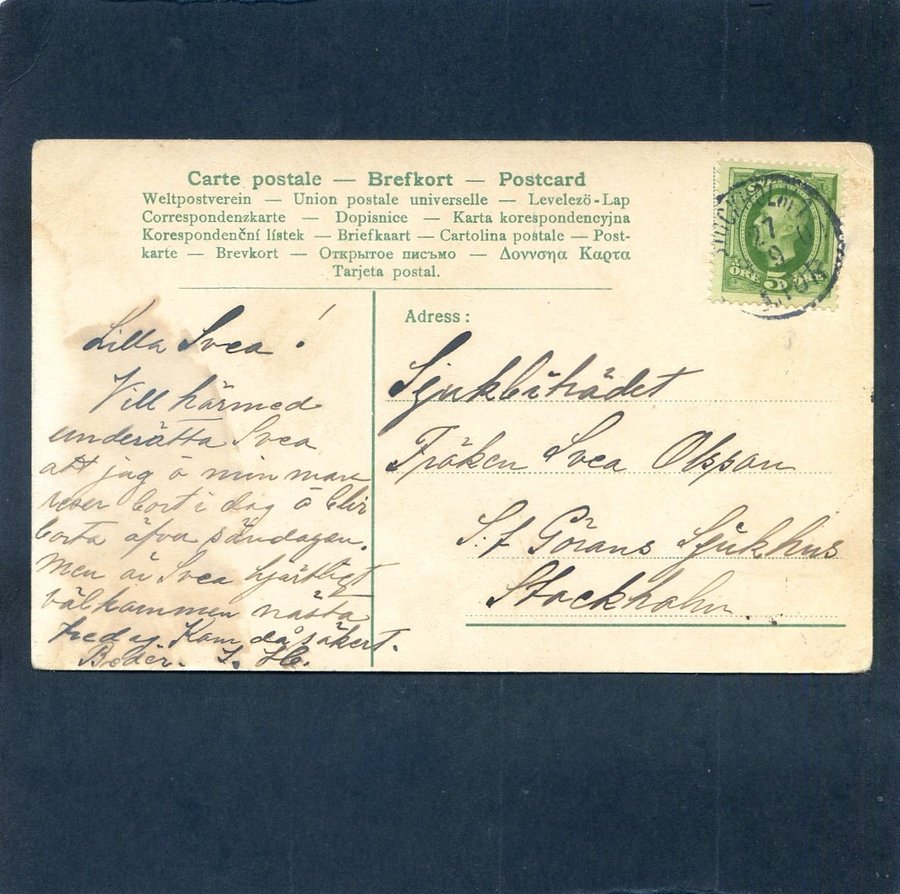 Carte postale — Brefkort — Postcard
Weltpostverein — Union postale universelle — Levelezö-Lap
Correspondenzkarte — Dopisnice — Karta korespondencyjna
Korespondenční lístek — Briefkaart — Cartolina postale — Post-
karte — Brevkort — Открытое письмо — Δοννσηα Καρτα
Tarjeta postal.
STOCKHOLM 1
27
9
ÖRE 5 ÖRE
Adress:
Lilla Svea!
Vill härmed
underätta Svea
att jag o min man
reser bort i dag o blir
borta äfva söndagen.
Men är Svea hjärtligt
välkommen nästa
Kom då säkert.
Sjukbiträdet
Fröken Svea Olsson
S:t Görans Sjukhus
Stockholm.